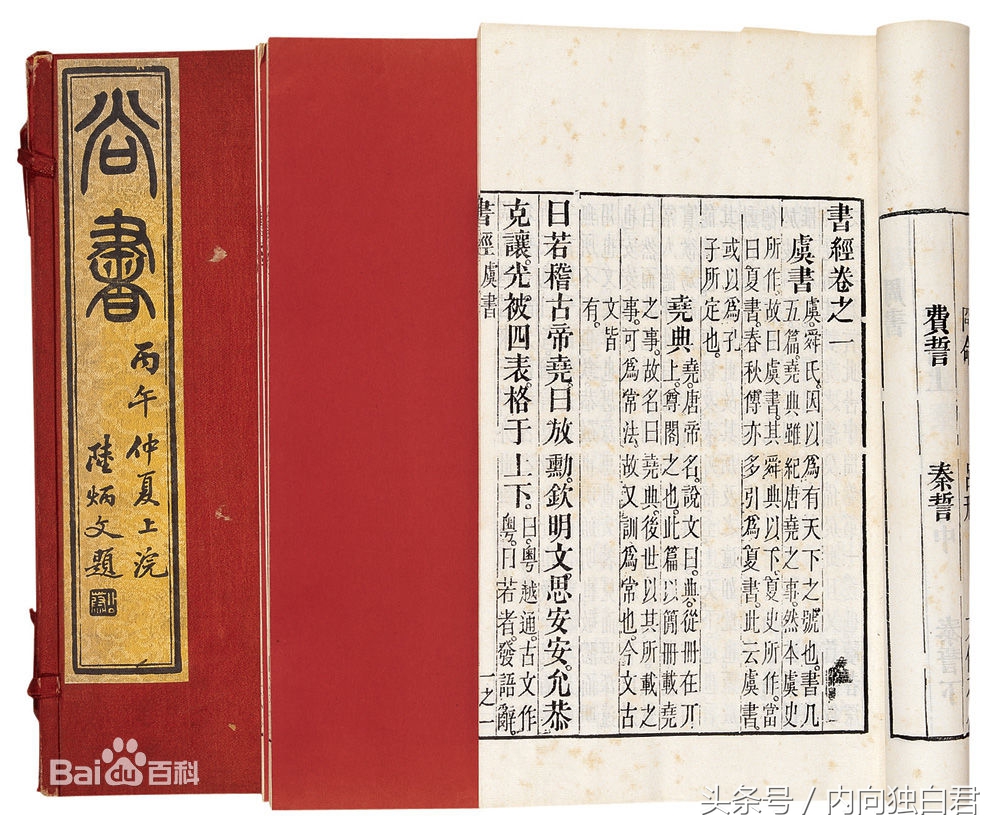 尚書
丙午仲夏上浣
陸炳文題
書經卷之一
虞書
虞。舜氏。因以為有天下之號也。書凡
五篇。堯典雖紀唐堯之事。然本虞史
所作。故曰虞書。其舜典以下。夏史所作。當
曰夏書。春秋傳亦多引為夏書。此云虞書。
或以為孔
子所定也。
堯典
堯。唐帝名。說文曰。典。從冊在丌
上。尊閣之也。此篇以簡冊載堯
之事。故名曰堯典。後世以其所載之
事。可為常法。故又訓為常也。今文古
文皆
有。
曰若稽古帝堯曰放勳。欽明文思安安。允恭
克讓。光被四表。格于上下。
曰。粵越通。古文作
粵。曰若者。發語辭。
書經 虞書 一之一
費誓
秦誓
Bai百科
头条号 / 内向独白君